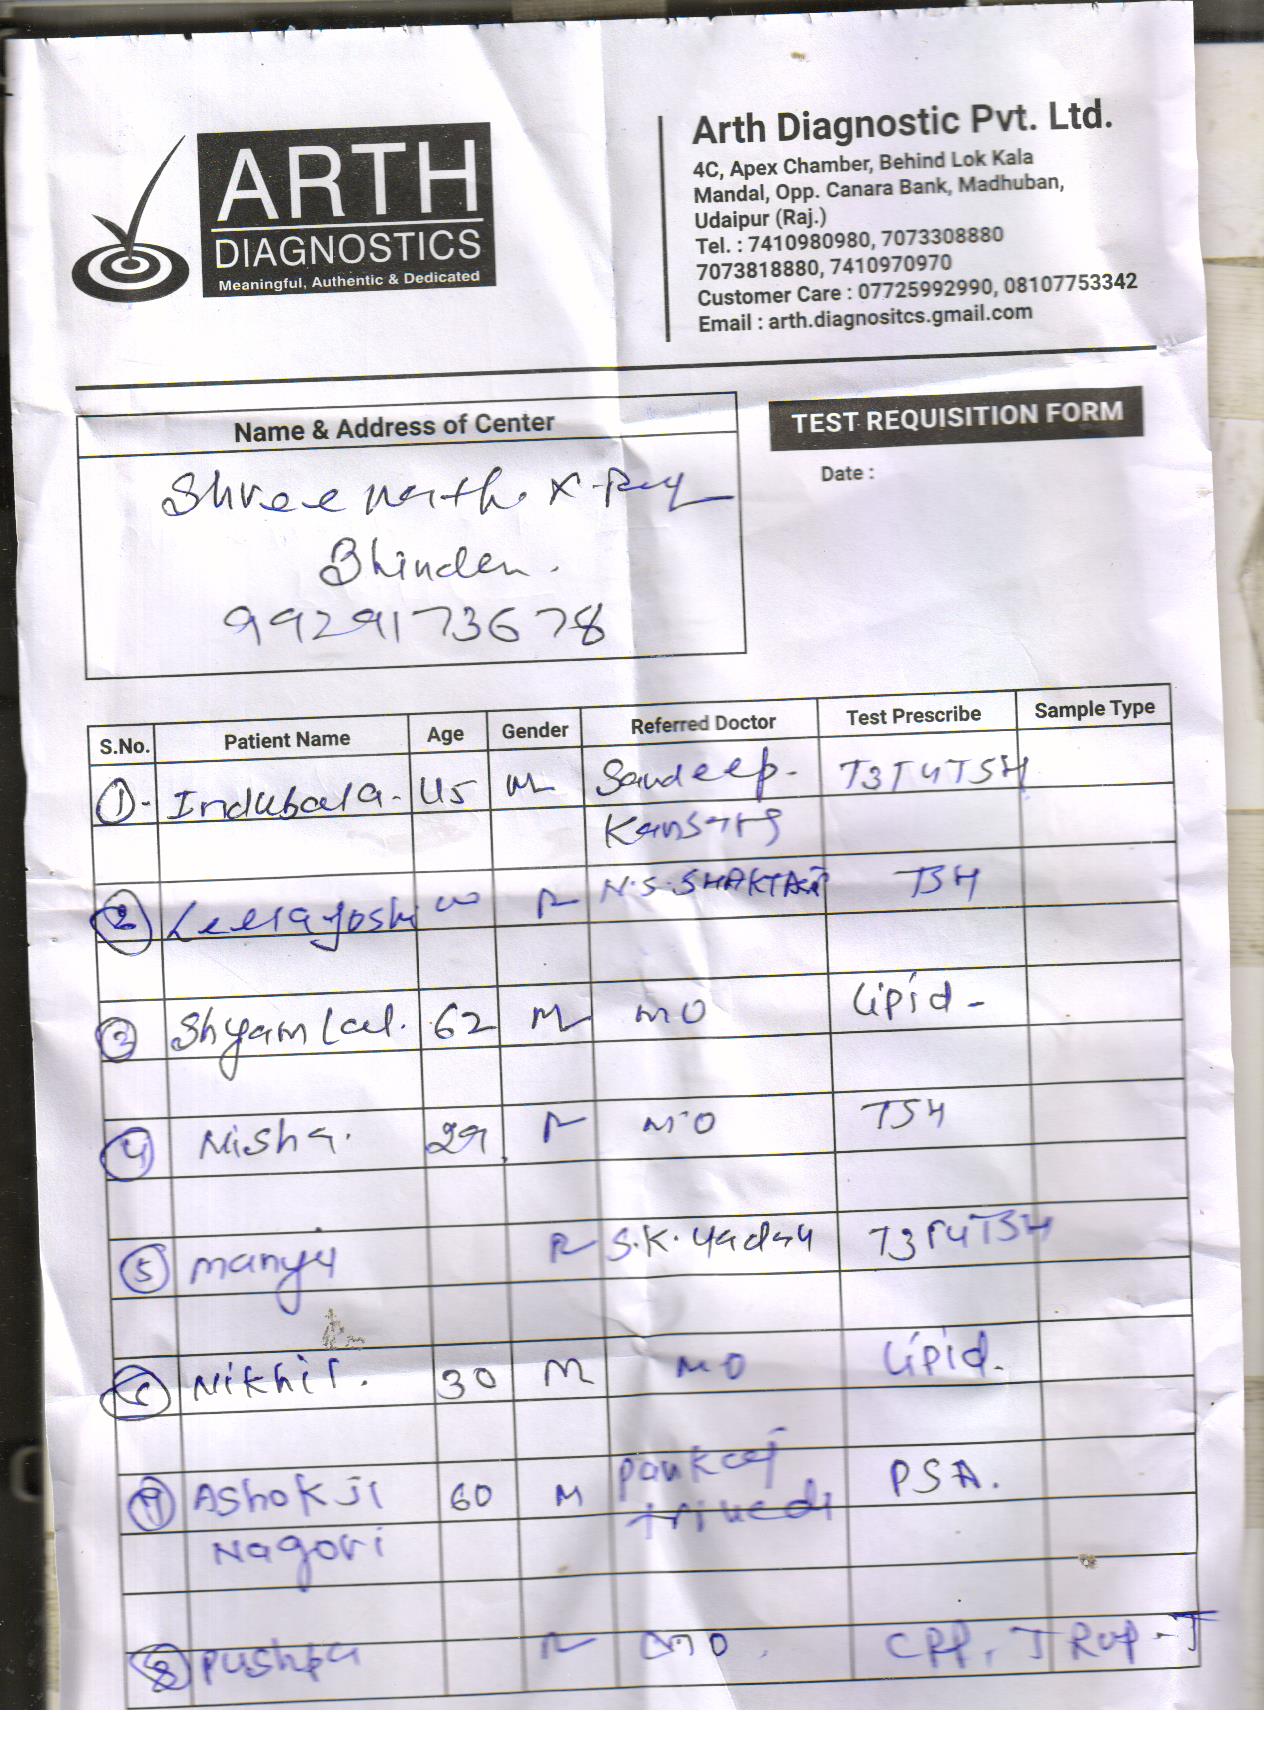 ARTH
DIAGNOSTICS
Meaningful, Authentic & Dedicated
Arth Diagnostic Pvt. Ltd.
4C, Apex Chamber, Behind Lok Kala
Mandal, Opp. Canara Bank, Madhuban,
Udaipur (Raj.)
Tel. : 7410980980, 7073308880
7073818880, 7410970970
Customer Care : 07725992990, 08107753342
Email : arth.diagnositcs.gmail.com
Name & Address of Center
Shree nath X-Ray
Bhinder.
9929173678
TEST REQUISITION FORM
Date :
S.No. Patient Name Age Gender Referred Doctor Test Prescribe Sample Type
1- Indubala. 45 M Sandeep- T3T4TSH
2 Leela Joshi F N.S. TSH
3 Shyam Lal. 62 M MO Lipid-
4 Nisha. 29 F MO TSH
5 F S.K. Yadav T3T4TSH
6 Nikhil. 30 M MO Lipid.
7 Ashok Ji 60 M Pankaj PSA.
Nagori trivedi
8 Pushpa F MO. Trop-T